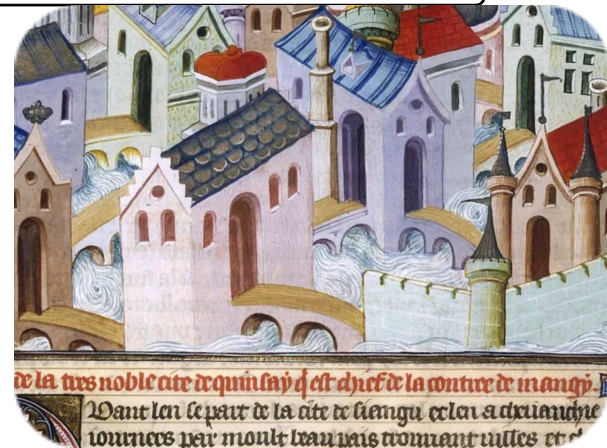 de la tres noble cite de quinsay q̃ est chief de la contree de mangy.
Vant len se part de la cite de siangu et len a cheuauchie
iournees par moult beau pais trouuant villes et